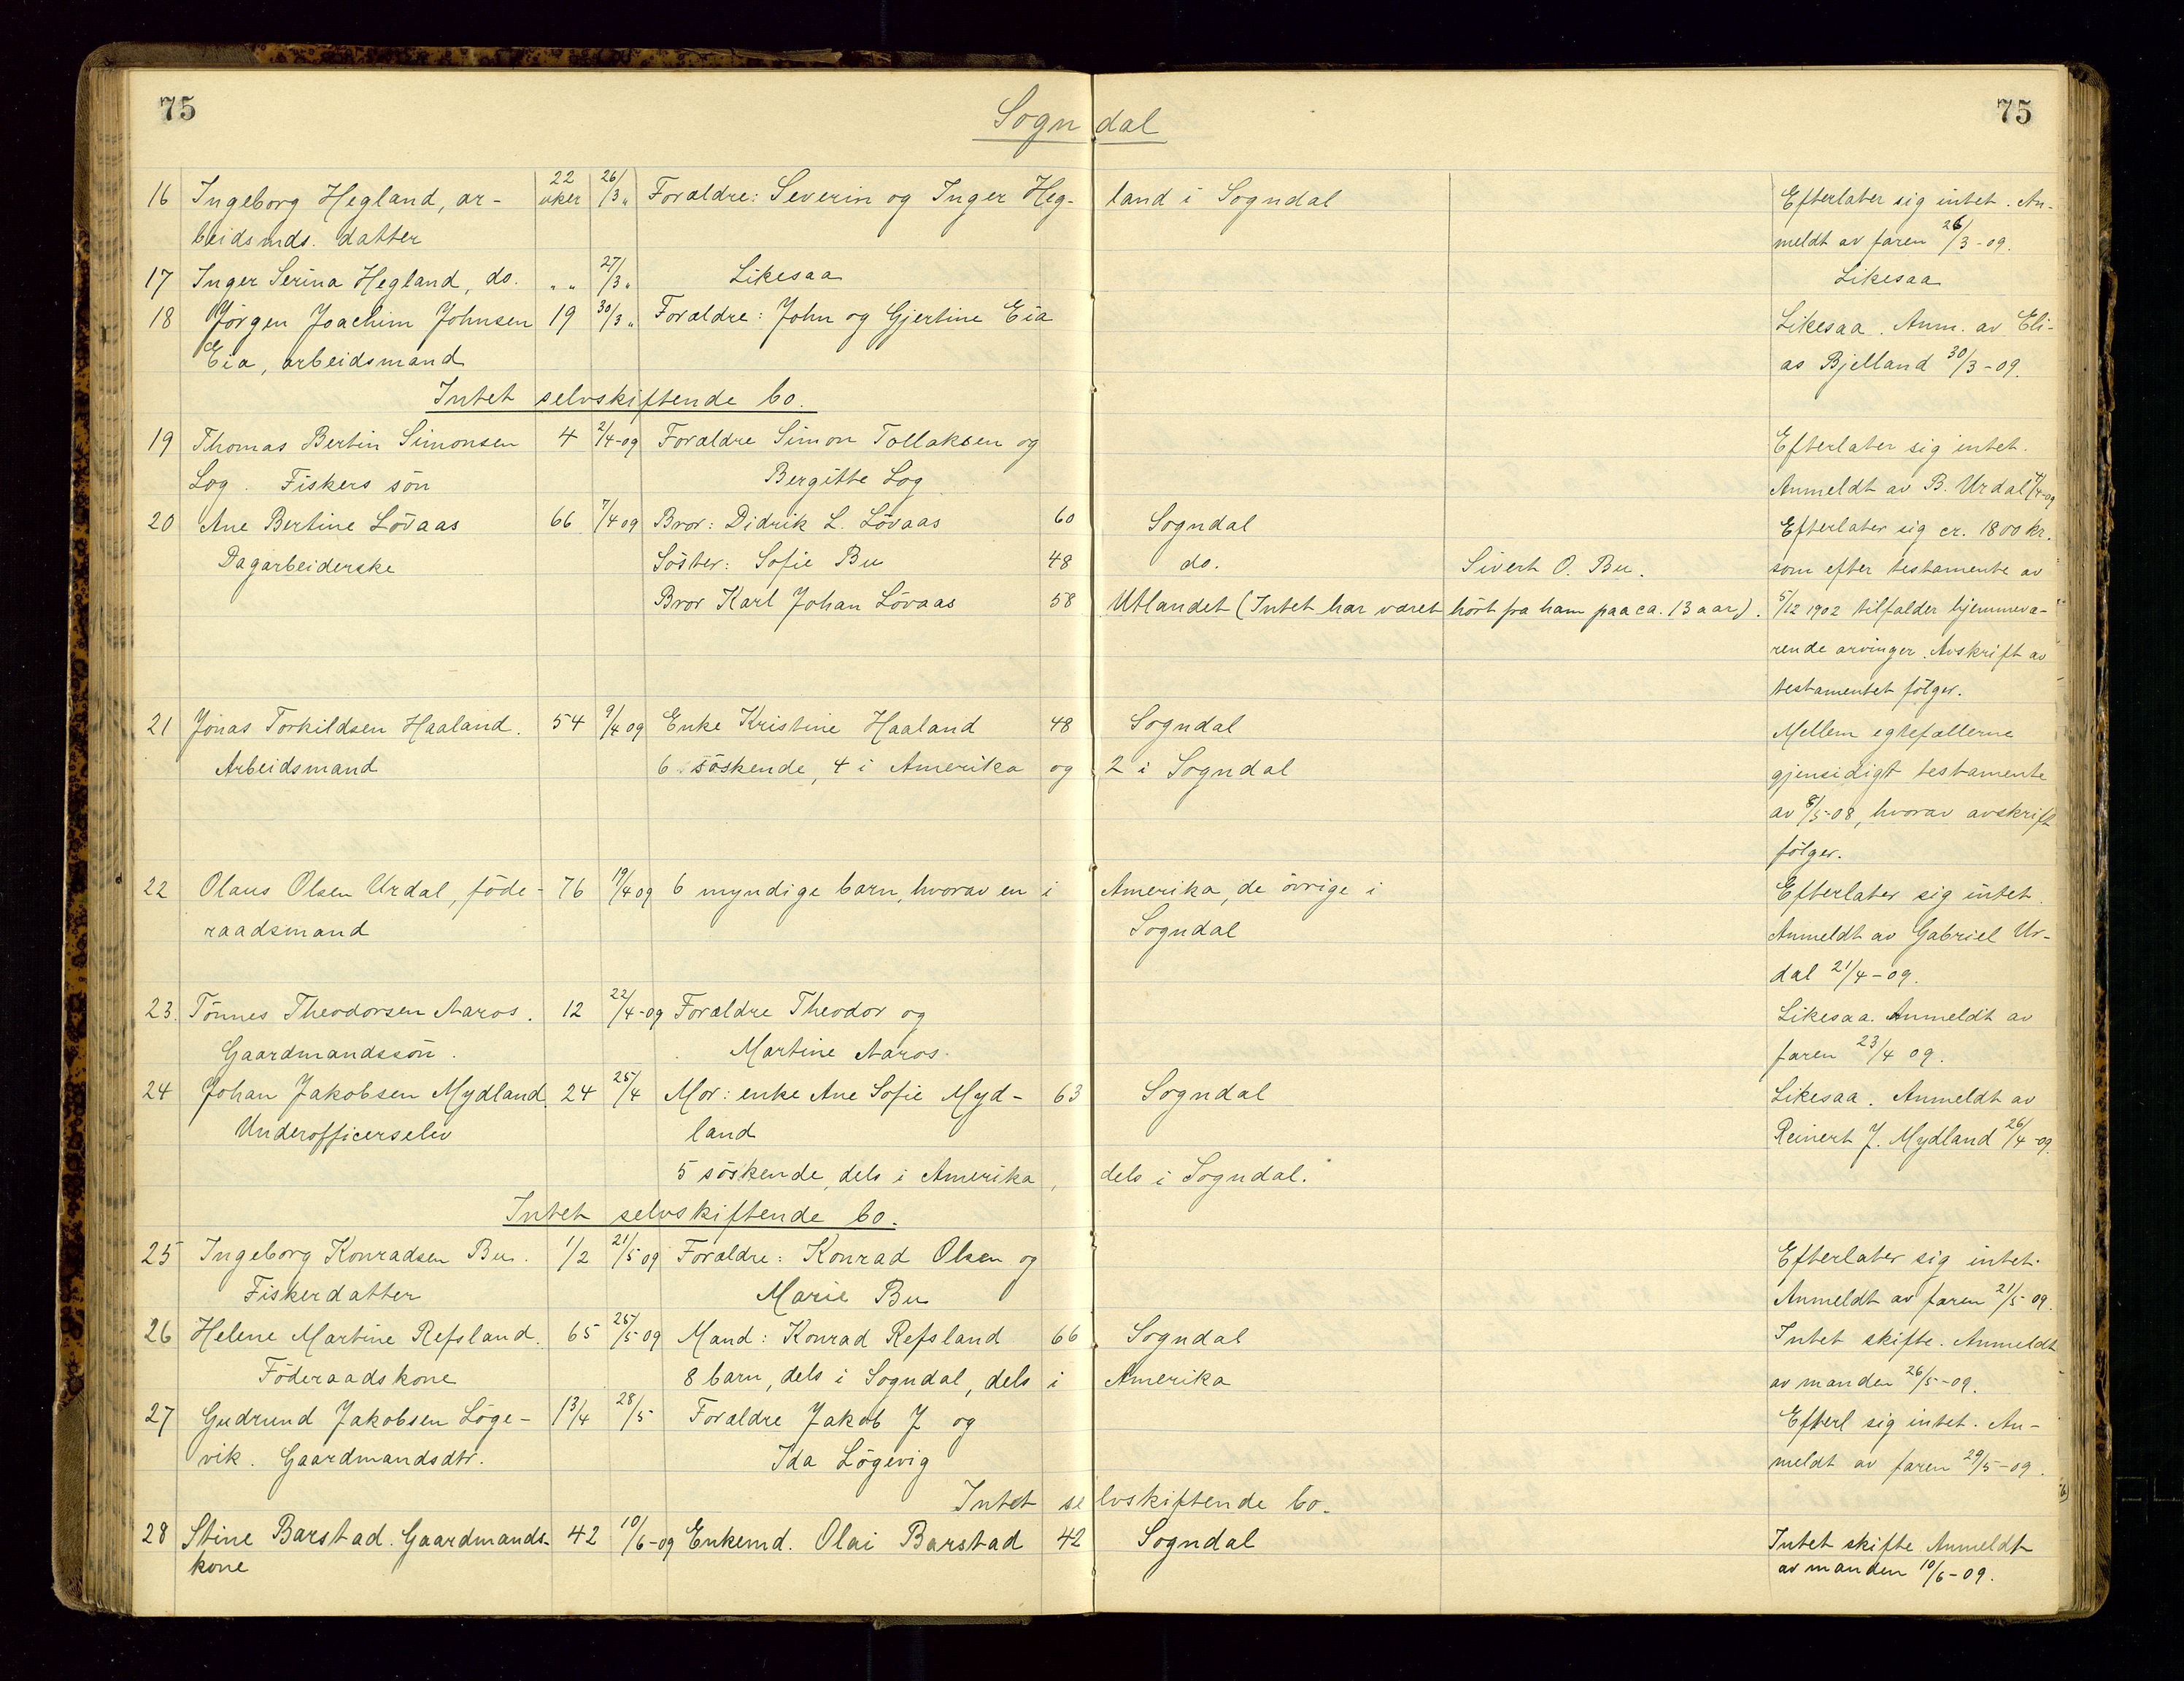 75
Sogndal
75
16 Ingeborg Hegland, ar- 22 uker 26/3 „ Forældre: Severin og Inger Hegland i Sogndal Efterlater sig intet. An-
beidsmds. datter meldt av faren 26/3-09.
17 Inger Serina Hegland, do. „ „ 27/3 „ Likesaa Likesaa
18 Jörgen Joachim Johnsen 19 30/3 „ Forældre: John og Gjertine Eia Likesaa. Anm. av Eli-
Eia, arbeidsmand as Bjelland 30/3-09.
Intet selvskiftende bo.
19 Thomas Bertin Simonsen 4 2/4-09 Forældre Simon Tollaksen og Efterlater sig intet.
Log. Fiskers sön Bergitte Log Anmeldt av B. Urdal 7/4-09
20 Ane Bertine Lövaas 66 7/4 09 Bror: Didrik L. Lövaas 60 Sogndal Efterlater sig cr. 1800 kr.
Dagarbeiderske Söster: Sofie Bu 48 do. Sivert O. Bu. som efter testamente av
Bror Karl Johan Lövaas 58 Utlandet (Intet har været hört fra ham paa ca. 13 aar). 5/12 1902 tilfalder hjemmevæ-
rende arvinger. Avskrift av
testamentet fölger.
21 Jonas Torkildsen Haaland. 54 9/4 09 Enke Kristine Haaland 48 Sogndal Mellem egtefællerne
Arbeidsmand 6 söskende, 4 i Amerika og 2 i Sogndal gjensidigt testamente
av 8/5-08, hvorav avskrift
fölger.
22 Olaus Olsen Urdal, föde- 76 19/4 09 6 myndige barn, hvorav en i Amerika, de övrige i Efterlater sig intet.
raadsmand Sogndal Anmeldt av Gabriel Ur-
dal 21/4-09.
23. Tönnes Theodorsen Aaros. 12 22/4-09 Forældre Theodor og Likesaa. Anmeldt av
Gaardmandssön. Martine Aaros. faren 23/4 09.
24 Johan Jakobsen Mydland. 24 25/4 Mor: enke Ane Sofie Myd- 63 Sogndal Likesaa. Anmeldt av
Underofficerselev land Reinert J. Mydland 26/4-09.
5 söskende, dels i Amerika, dels i Sogndal.
Intet selvskiftende bo.
25 Ingeborg Konradsen Bu. 1/2 21/5 09 Forældre: Konrad Olsen og Efterlater sig intet.
Fiskerdatter Marie Bu Anmeldt av faren 21/5 09.
26 Helene Martine Refsland. 65 25/5 09 Mand: Konrad Refsland 66 Sogndal Intet skifte. Anmeldt
Föderaadskone 8 barn, dels i Sogndal, dels i Amerika av manden 26/5-09.
27 Gudrund Jakobsen Löge- 1 3/4 28/5 Forældre Jakob J og Efterl sig intet. An-
vik. Gaardmandsdtr. Ida Lögevig meldt av faren 29/5-09.
Intet selvskiftende bo.
28 Stine Barstad. Gaardmands- 42 10/6-09 Enkemd. Olai Barstad 42 Sogndal Intet skifte Anmeldt
kone av manden 10/6-09.